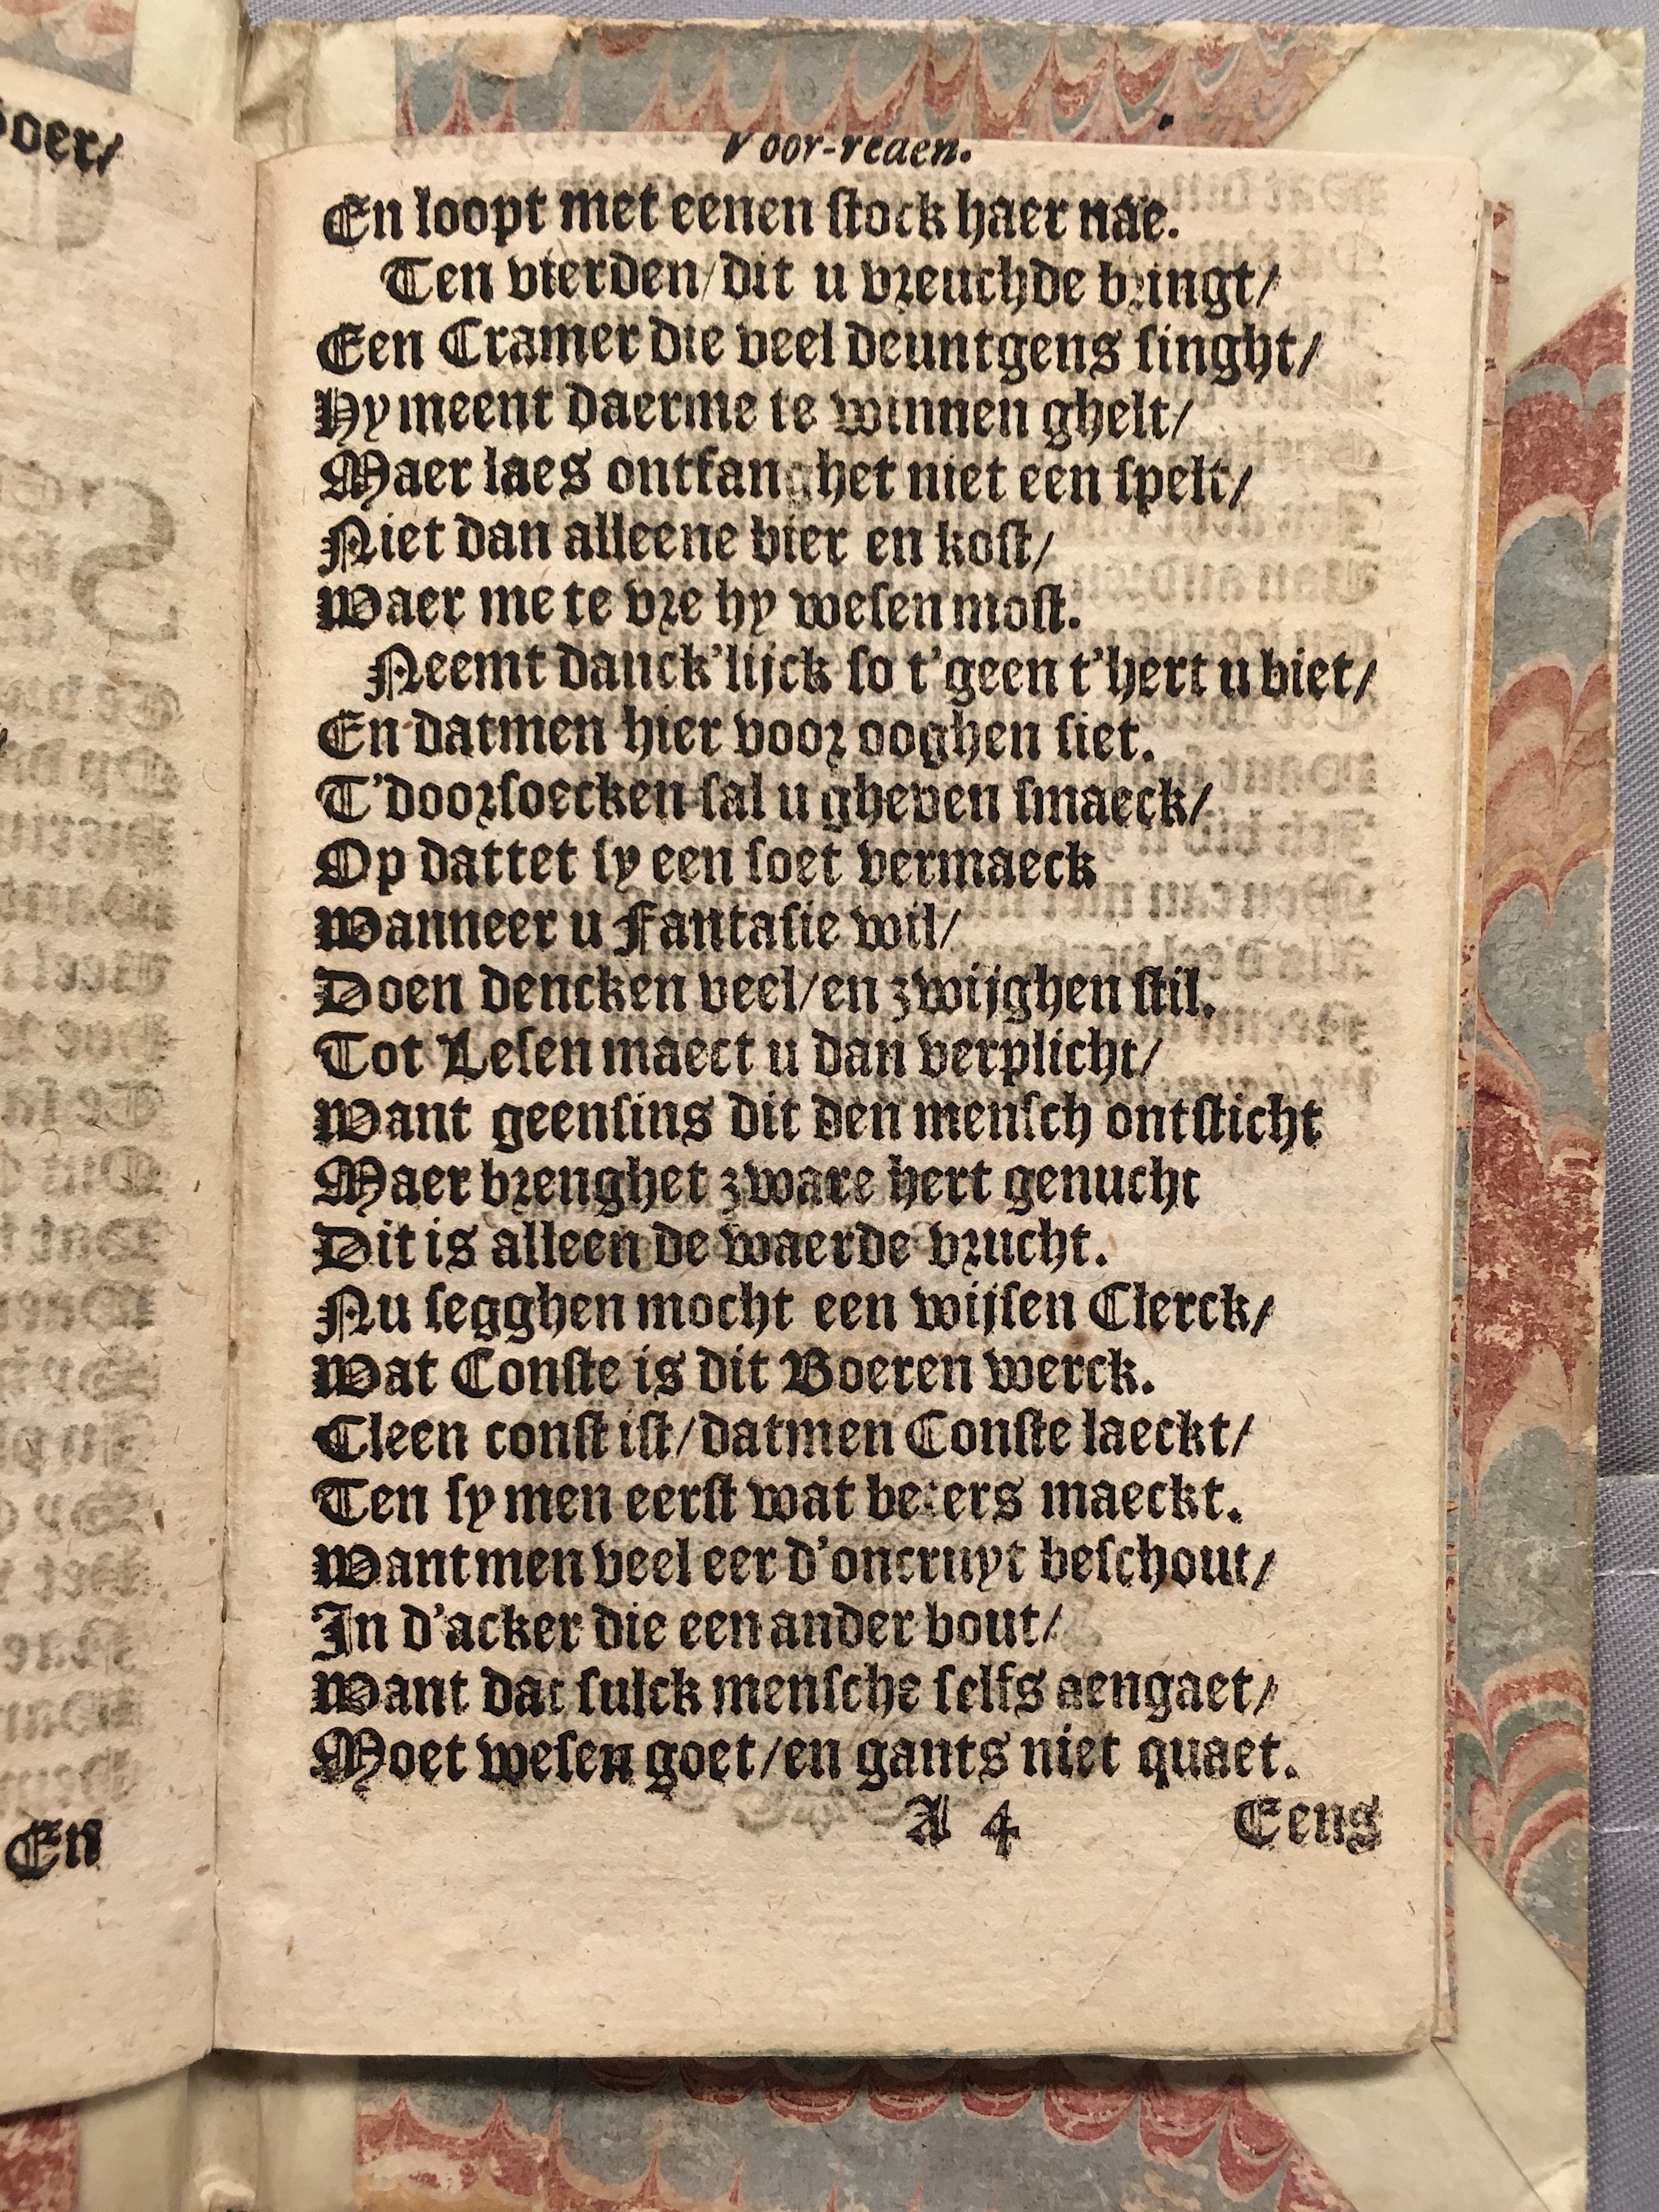 oer/
En
Voor-reden.
En loopt met eenen stock haer nae.
Ten vierden/dit u vreuchde bringt/
Een Cramer die veel deuntgens singht/
Hy meent daerme te winnen ghelt/
Maer laes ontfanghet niet een spelt/
Niet dan alleene bier en kost/
Waer me te vre hy wesen most.
Neemt danck'lijck so t'geen t'hert u biet/
En datmen hier voor ooghen siet.
T'doorsoecken sal u gheven smaeck/
Op dattet sy een soet vermaeck
Wanneer u Fantasie wil/
Doen dencken veel/en zwijghen stil.
Tot Lesen maect u dan verplicht/
Want geensins dit den mensch ontsticht
Maer brenghet zware hert genucht
Dit is alleen de waerde vrucht.
Nu segghen mocht een wijsen Clerck/
Wat Conste is dit Boeren werck.
Cleen const ist/datmen Conste laeckt/
Ten sy men eerst wat beters maeckt.
Wantmen veel eer d'oncruyt beschout/
In d'acker die een ander bout/
Want dat sulck mensche selfs aengaet/
Moet wesen goet/en gants niet quaet.
A 4 Eens